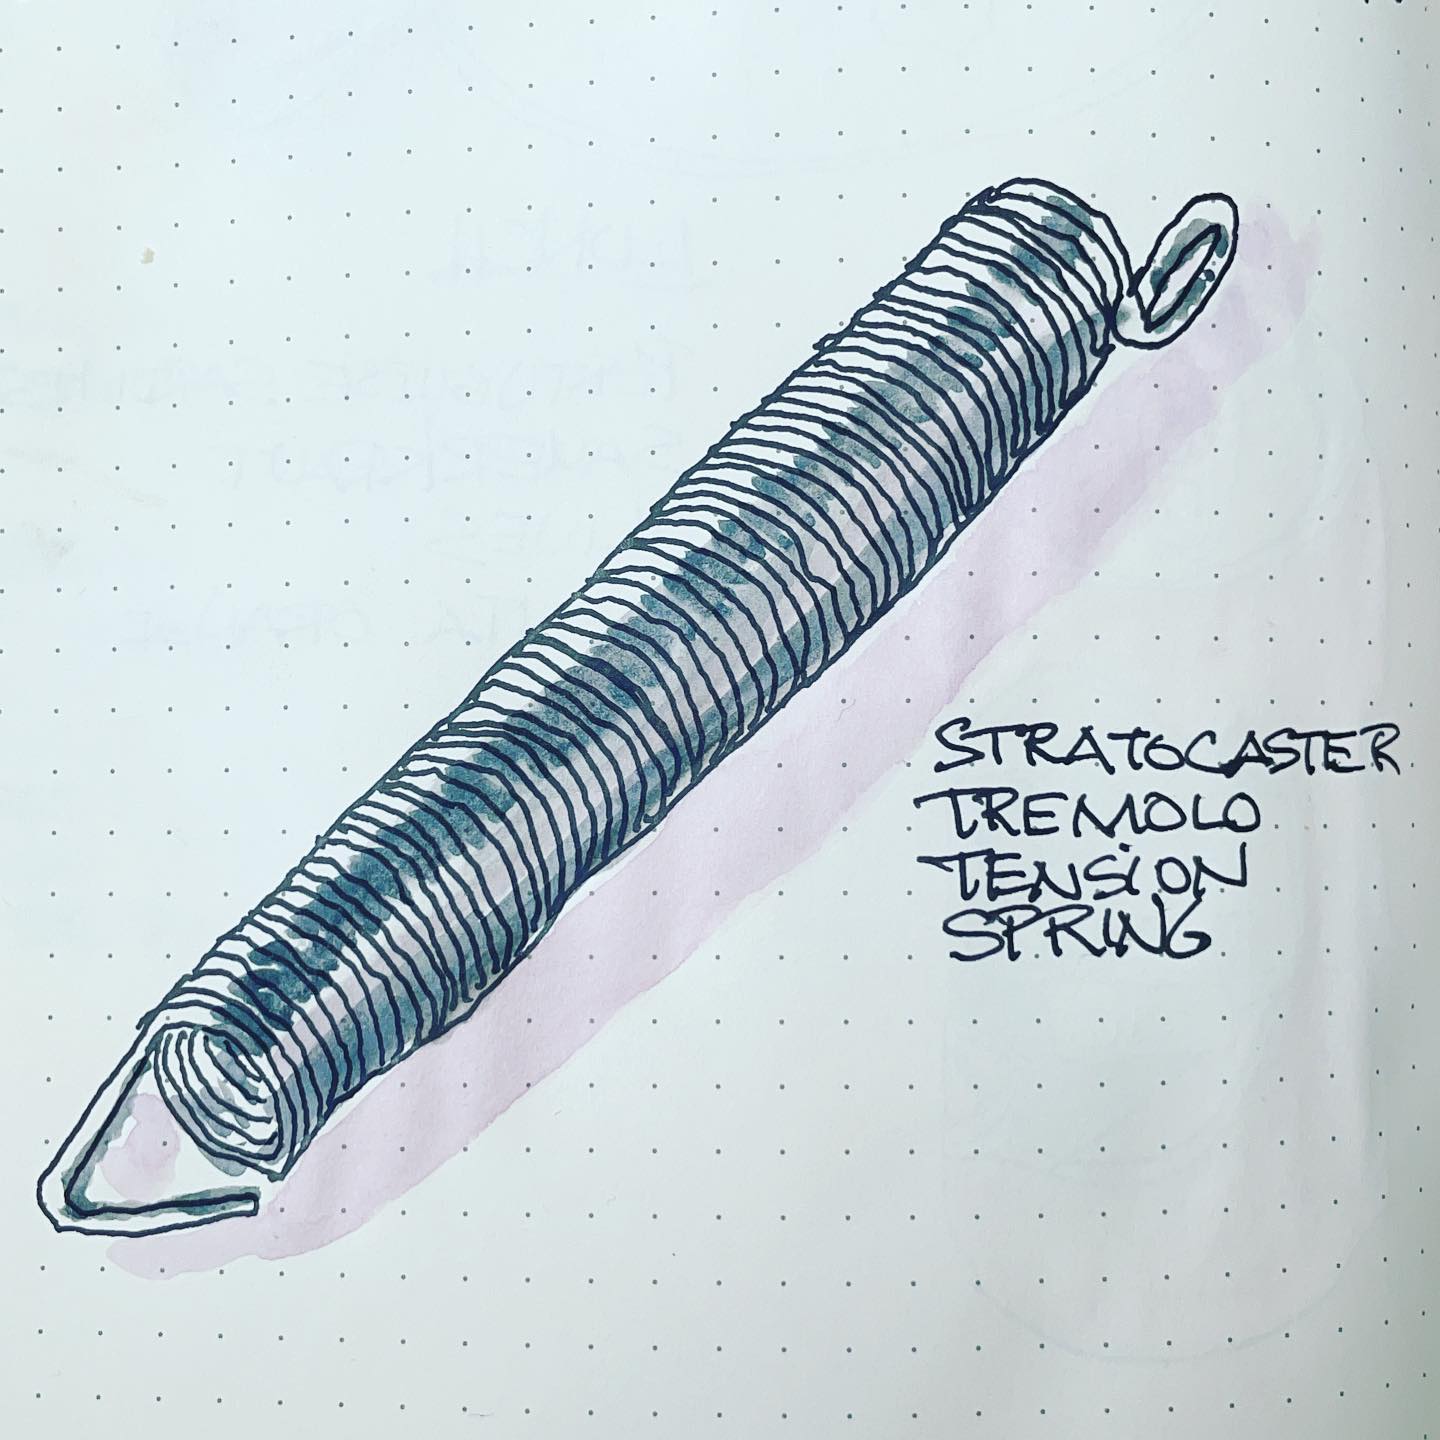 STRATOCASTER
TREMOLO
TENSION
SPRING